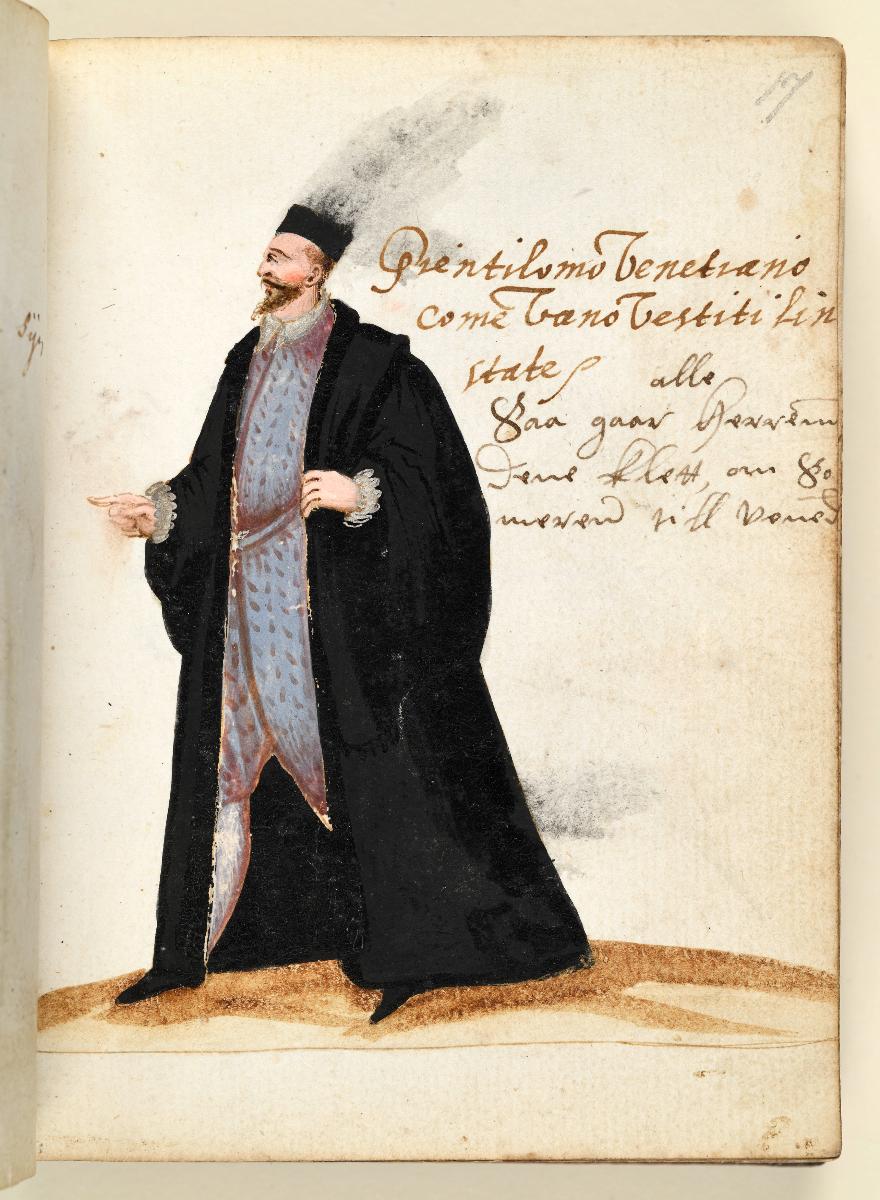 17
Gientilomo Venetiano
come Vano Vestiti lin
state
alle
Saa gaar Herrem
dene klett, om So
meren till Vened